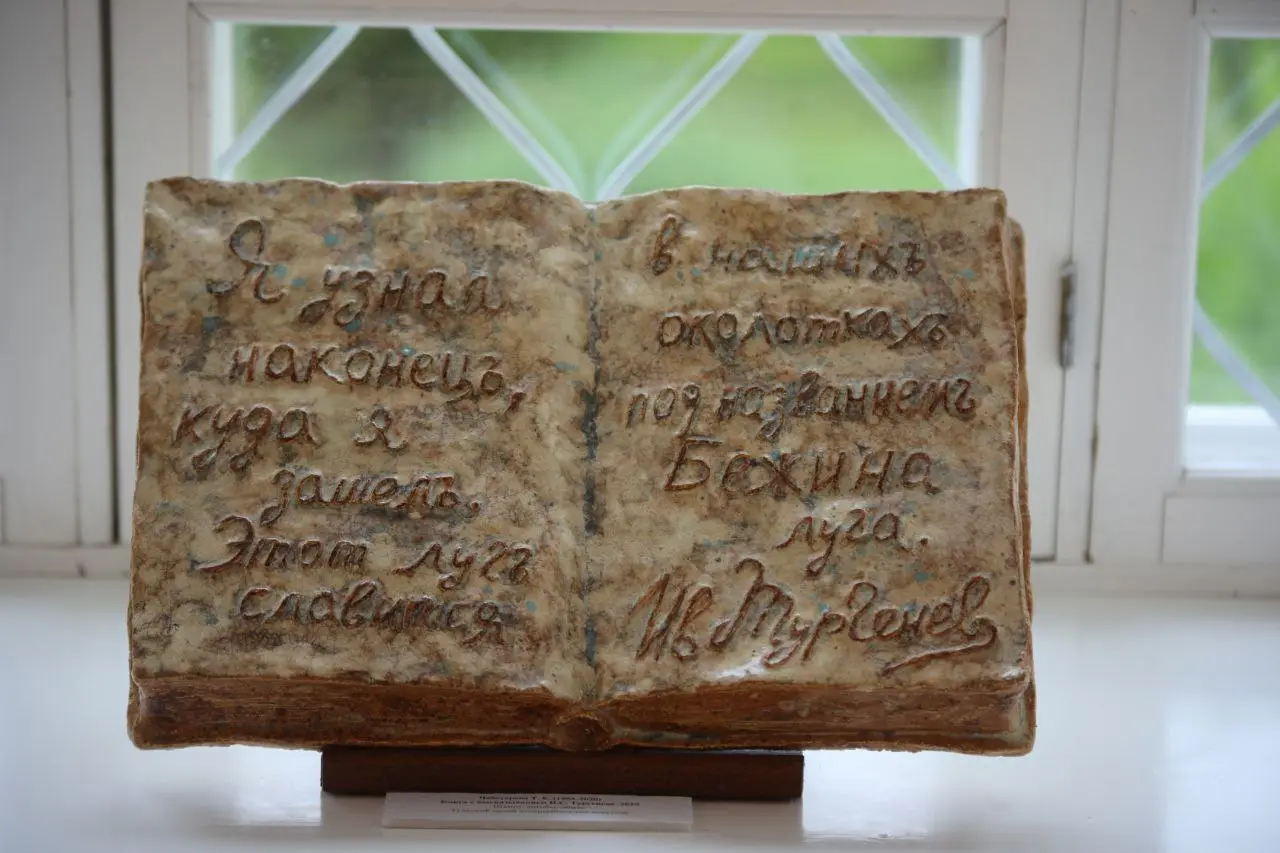 Я узнал
наконецъ,
куда я
зашелъ.
Этот лугъ
славится
в нашихъ
околоткахъ
под названиемъ
Бежина
луга.
Ив Тургенев